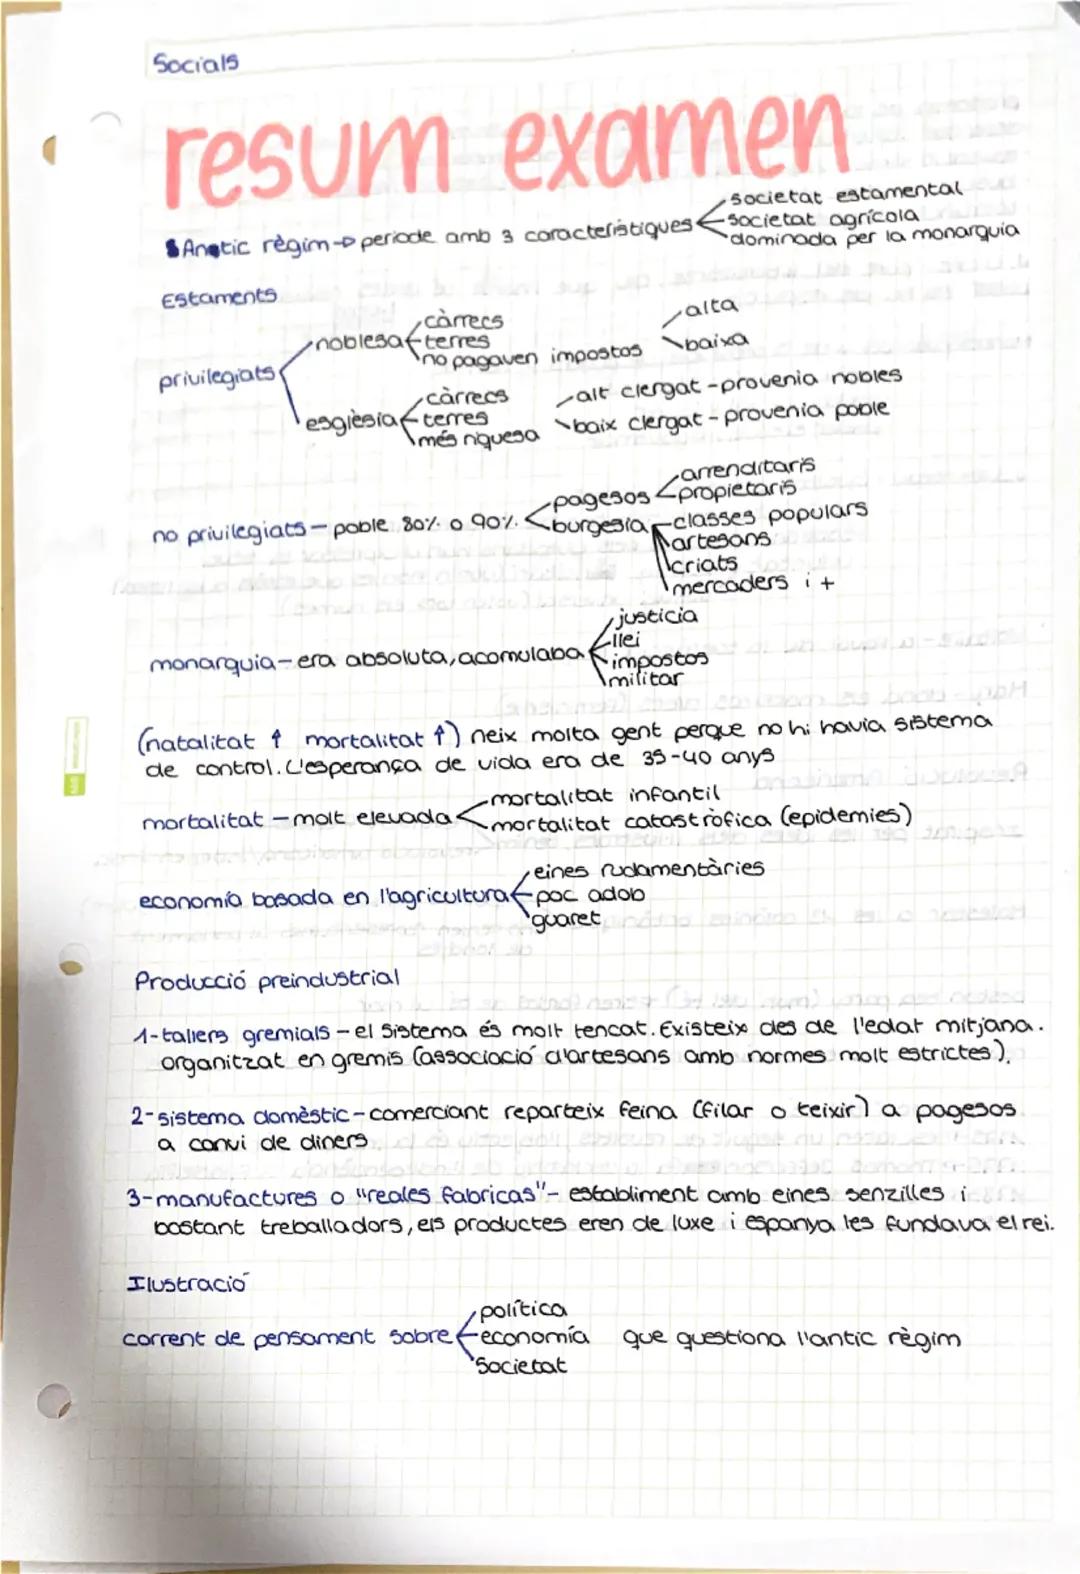 Socials
resum examen
Anatic règim → periode amb 3 característiques
societat estamental
societat agrícola
dominada per la monarquia
Estaments
privilegiats
noblesa
càrrecs
terres
no pagaven impostos
alta
baixa
esglèsia
càrrecs
terres
més riquesa
alt clergat - provenia nobles
baix clergat - provenia poble
no privilegiats - poble 80% o 90%.
pagesos
arrenditaris
propietaris
burgesia
classes populars
artesans
criats
mercaders i +
monarquia - era absoluta, acomulaba
justicia
llei
impostos
militar
(natalitat ↑ mortalitat ↑) neix molta gent perque no hi havia sistema
de control. L'esperança de vida era de 35-40 anys
mortalitat - molt elevada
mortalitat infantil
mortalitat catastròfica (epidemies)
economía basada en l'agricultura
eines rudamentàries
poc adob
guaret
Producció preindustrial
1-tallers gremials - el sistema és molt tencat. Existeix des de l'edat mitjana.
organitzat en gremis (associació d'artesans amb normes molt estrictes).
2-sistema domèstic - comerciant reparteix feina (filar o teixir) a pagesos
a canvi de diners
3-manufactures o "reales fabricas" - establiment amb eines senzilles i
bastant treballadors, els productes eren de luxe i espanya les fundava el rei.
Ilustració
corrent de pensament sobre
política
economía
societat
que questiona l'antic règim